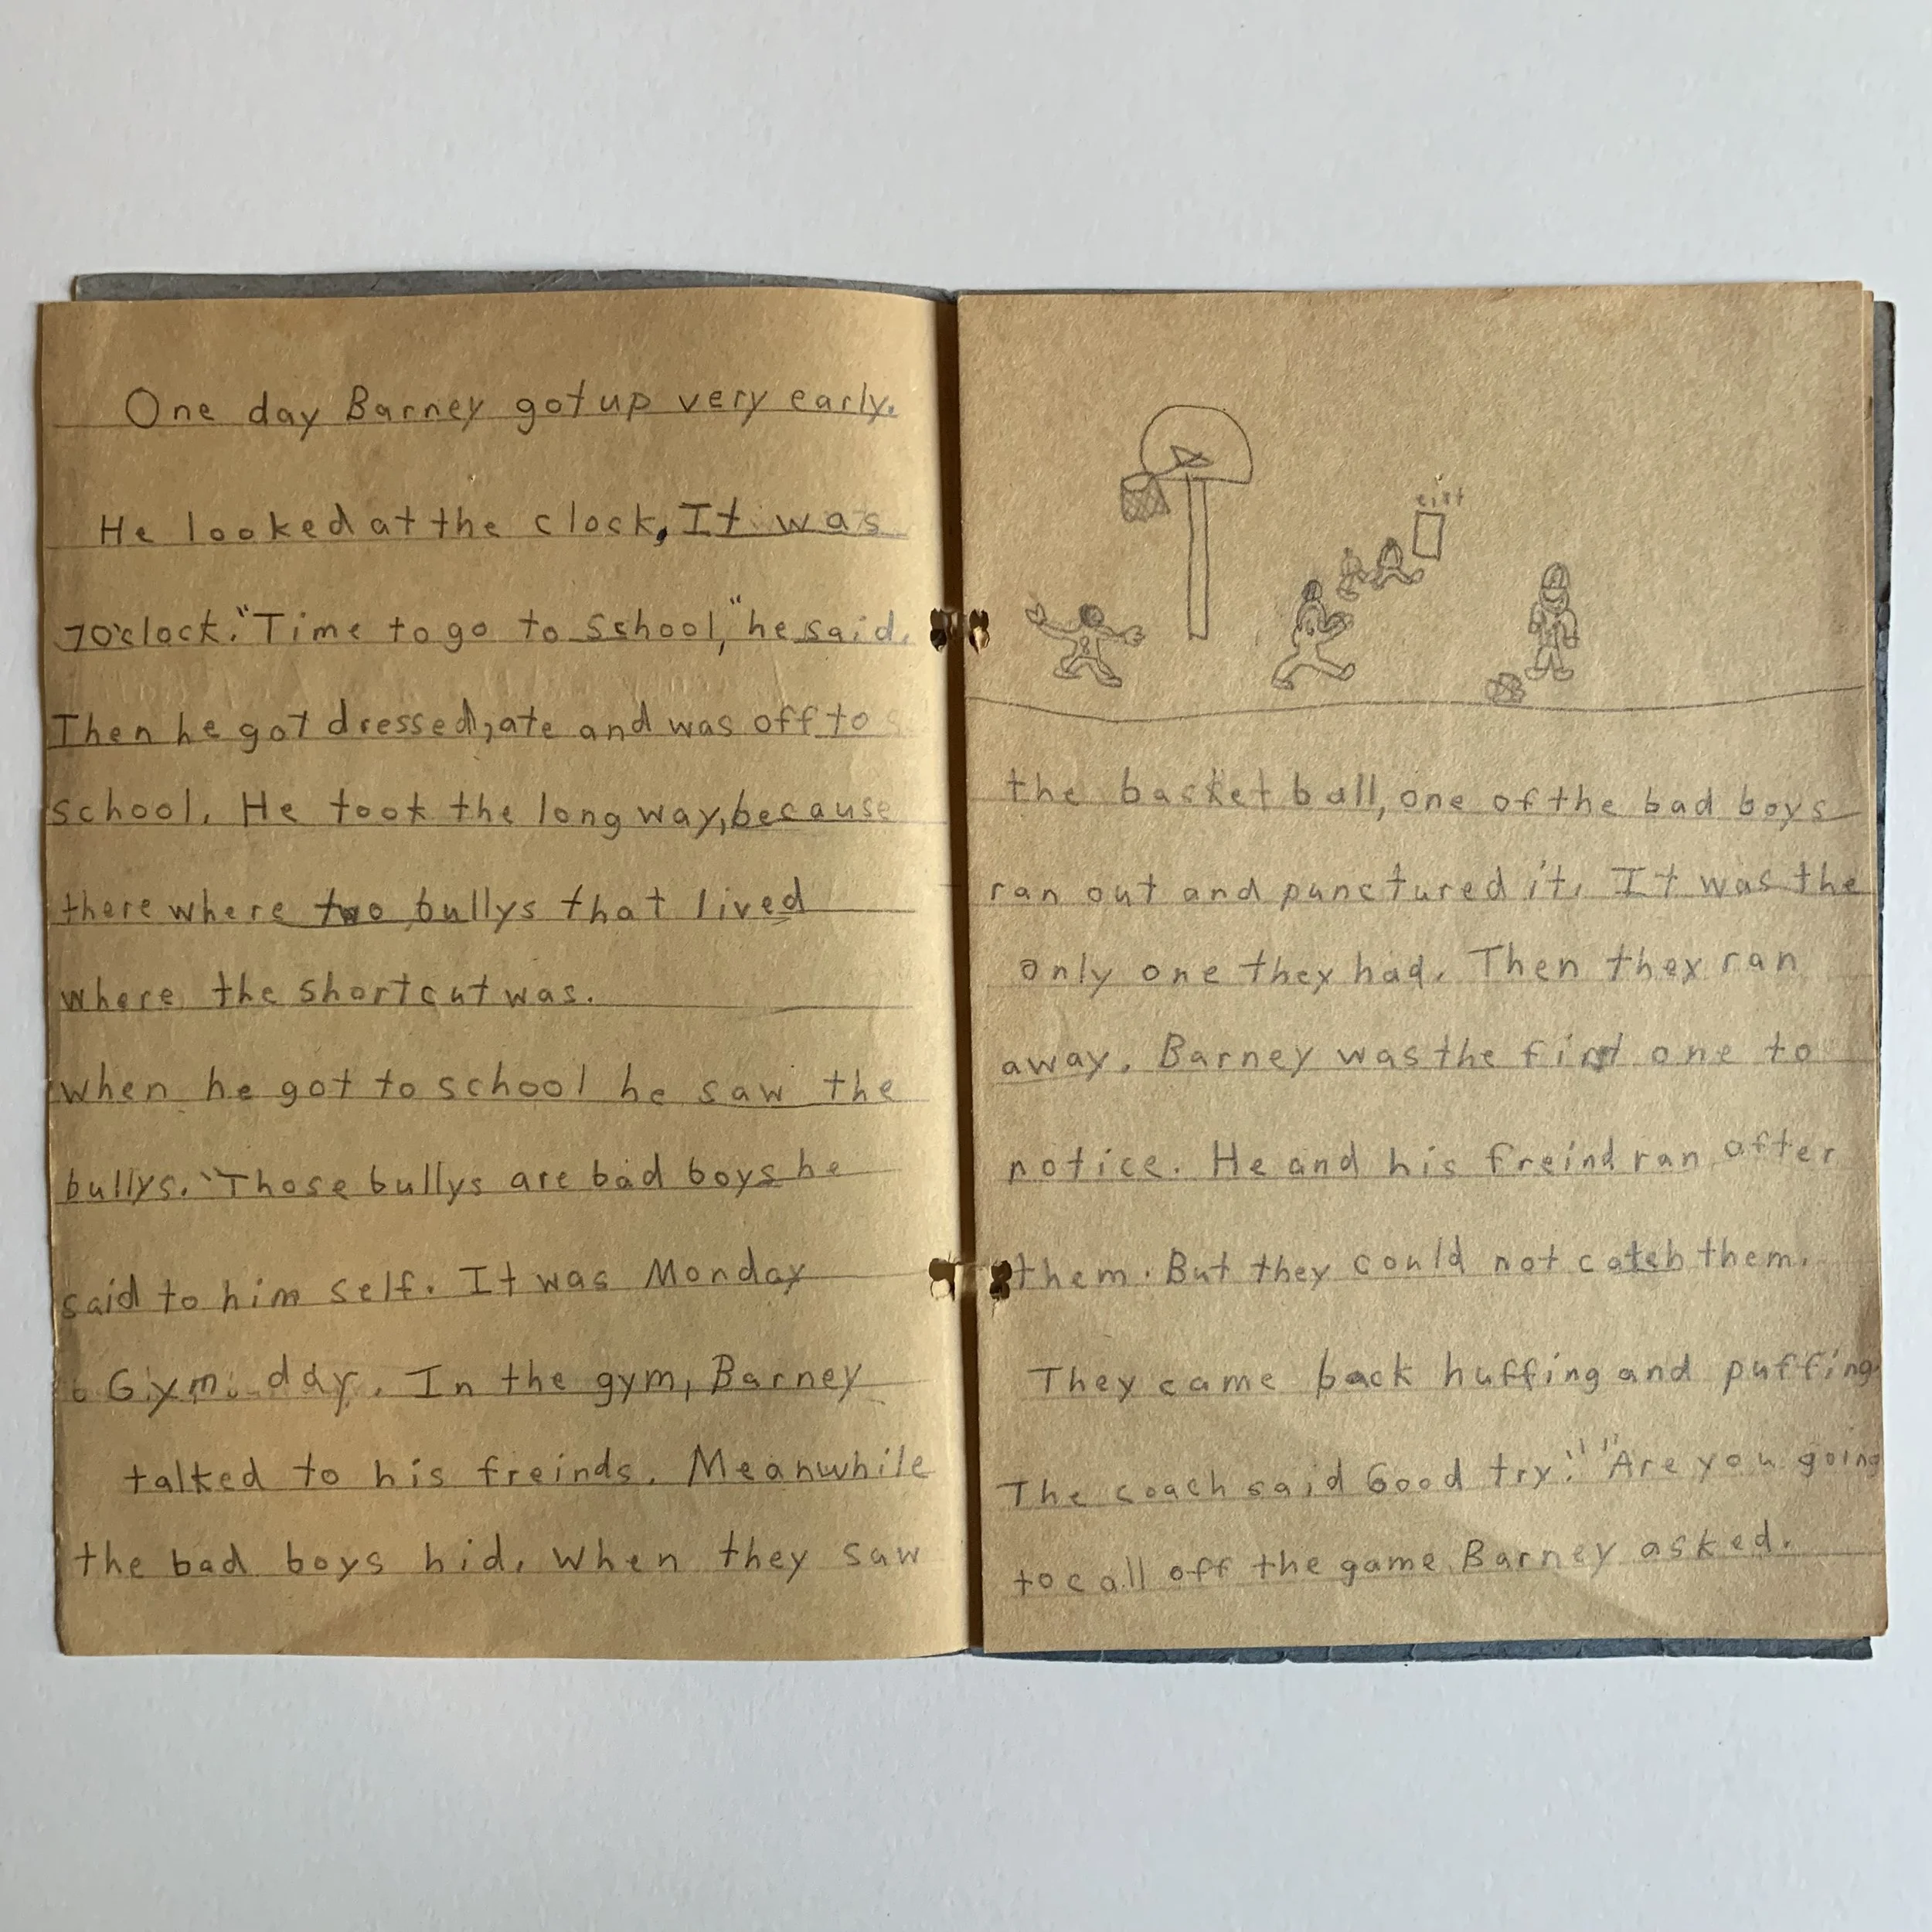 One day Barney got up very early.
He looked at the clock, It was
7 O'clock. "Time to go to school," he said.
Then he got dressed, ate and was off to
school. He took the long way, because
there where two bullys that lived
where the shortcut was.
when he got to school he saw the
bullys. "Those bullys are bad boys he
said to him self. It was Monday
Gym day. In the gym, Barney
talked to his freinds. Meanwhile
the bad boys hid. When they saw
the basket ball, one of the bad boys
ran out and punctured it. It was the
only one they had. Then they ran
away. Barney was the first one to
notice. He and his freind ran after
them. But they could not catch them.
They came back huffing and puffing
The coach said Good try." "Are you going
to call off the game Barney asked.